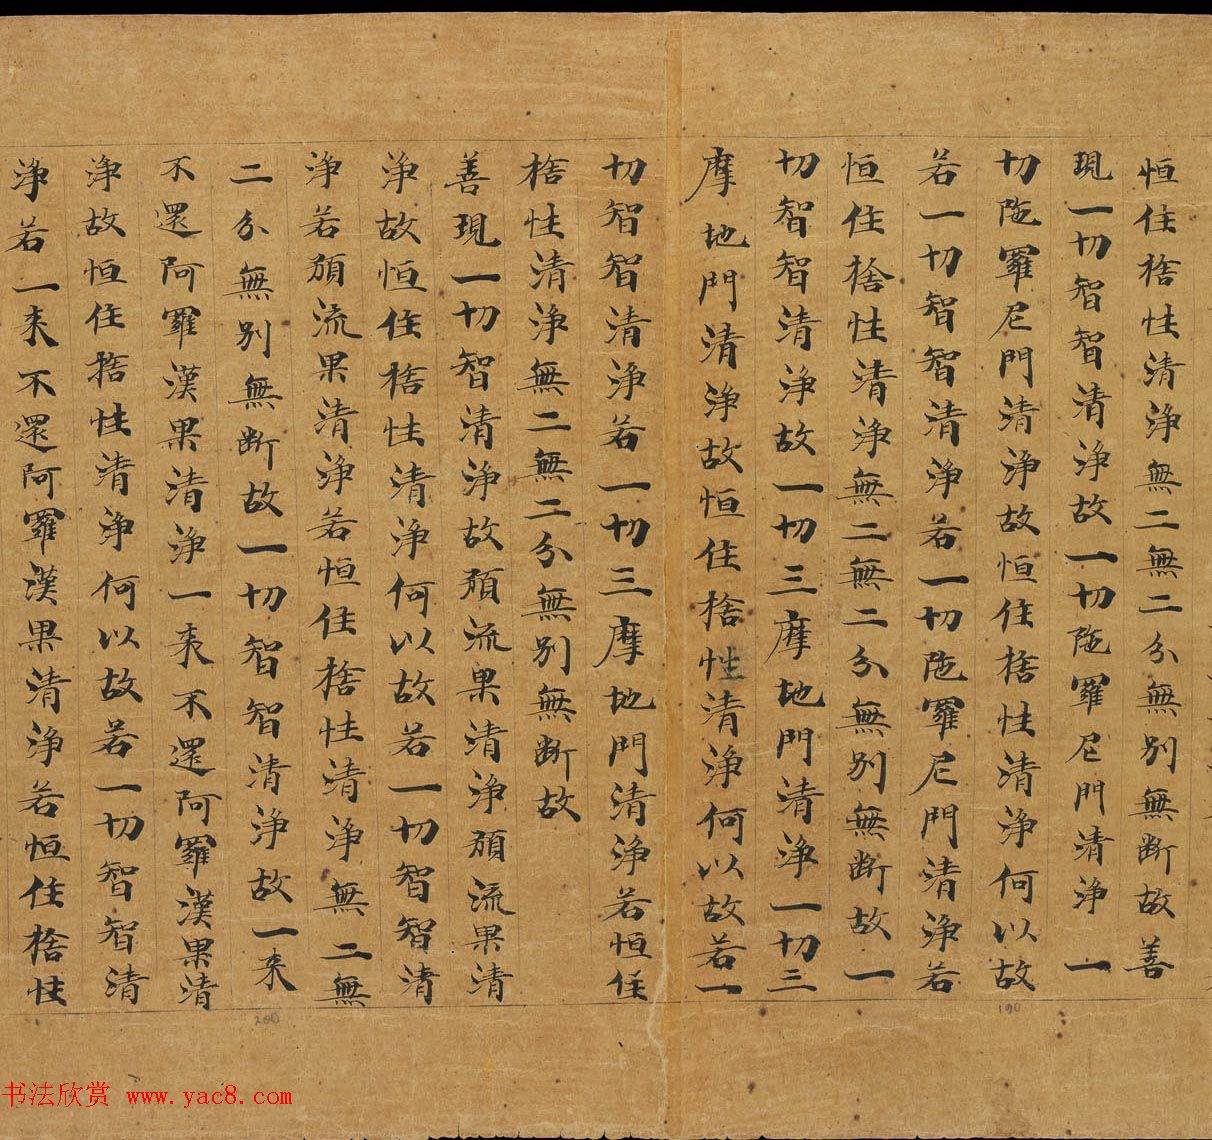 恒住捨性清淨無二無二分無別無断故善
現一切智智清淨故一切陁羅尼門清淨一
切陁羅尼門清淨故恒住捨性清淨何以故
若一切智智清淨若一切陁羅尼門清淨若
恒住捨性清淨無二無二分無別無断故一
切智智清淨故一切三摩地門清淨一切三
摩地門清淨故恒住捨性清淨何以故若一
切智智清淨若一切三摩地門清淨若恒住
捨性清淨無二無二分無別無断故
善現一切智清淨故預流果清淨預流果清
淨故恒住捨性清淨何以故若一切智智清
淨若預流果清淨若恒住捨性清淨無二無
二分無別無断故一切智智清淨故一来
不還阿羅漢果清淨一来不還阿羅漢果清
淨故恒住捨性清淨何以故若一切智智清
淨若一来不還阿羅漢果清淨若恒住捨性
190
200
书法欣赏 www.yac8.com